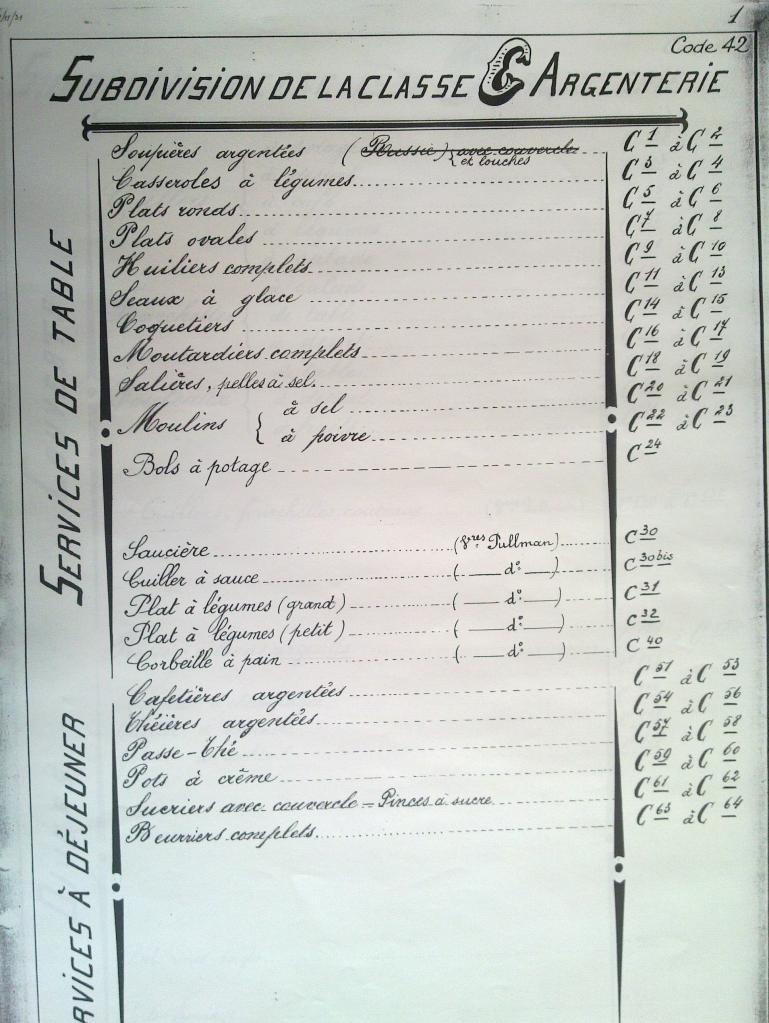 1
Code 42
SUBDIVISION DE LA CLASSE C ARGENTERIE
SERVICES DE TABLE
Soupières argentées ( ) avec couvercle et louches C 1 à C 2
Casseroles à légumes C 3 à C 4
Plats ronds C 5 à C 6
Plats ovales C 7 à C 8
Huiliers complets C 9 à C 10
Seaux à glace C 11 à C 13
Coquetiers C 14 à C 15
Moutardiers complets C 16 à C 17
Salières, pelles à sel. C 18 à C 19
Moulins { à sel C 20 à C 21
à poivre C 22 à C 23
Bols à potage C 24
Saucière (Vres Pullman) C 30
Cuiller à sauce ( — do — ) C 30bis
Plat à légumes (grand) ( — do — ) C 31
Plat à légumes (petit) ( — do — ) C 32
Corbeille à pain ( — do — ) C 40
RVICES À DÉJEUNER
Cafetières argentées C 51 à C 53
Théières argentées C 54 à C 56
Passe-Thé C 57 à C 58
Pots à crême C 59 à C 60
Sucriers avec couvercle = Pinces à sucre C 61 à C 62
Beurriers complets C 63 à C 64